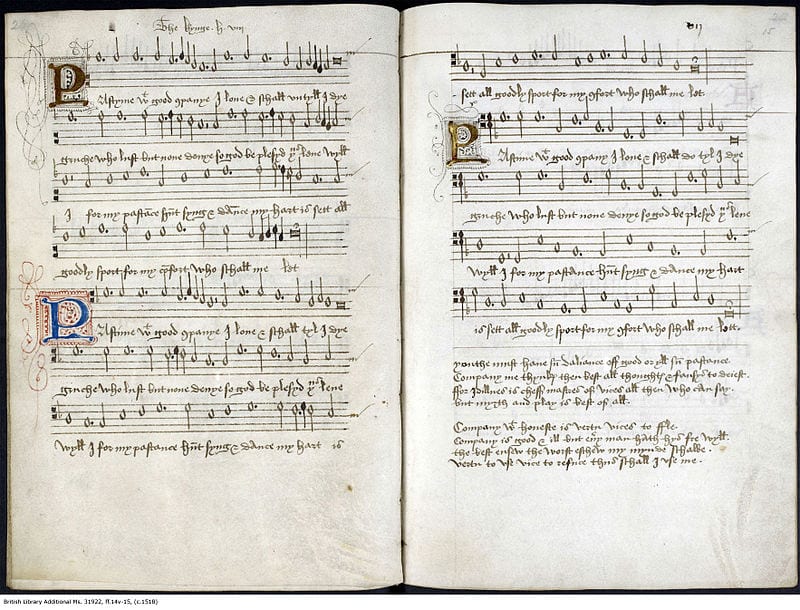 The kynge . h . viij
Pastyme wt good companye I love & schall untyll I dye
gruche who lust but none denye so god be plesyd þus leve wyll
I for my pastance hunt syng & dance my hart is sett all
goodly sport for my comfort who schall me let
Pastime wt good companye I love & schall tyl I dye
gruche who lust but none denye so god be plesyd þus leve
wyll I for my pastance hunt syng & dance my hart is
15
sett all goodly sport for my comfort who schall me let
Pastime wt good company I love & schall do tyl I dye
gruche who lust but none denye so god be plesyd þus leve
wyll I for my pastance hunt syng & dance my hart
is sett all goodly sport for my comfort who schall me lett.
youthe must have sum daliance off good or yll sum pastance.
Company me thynks then best all thoughts & fansys to deiest.
ffor Idillnes is cheff mastres of vices all then who can say.
but myrth and play is best of all.
Company wt honeste is vertu vices to ffle.
Company is good & ill but every man hath hys fre wyll.
the best ensew the worst eschew my mynde schalbe.
vertu to use vice to refuce thus schall I use me.
British Library Additional Ms. 31922, ff.14v-15, (c.1518)